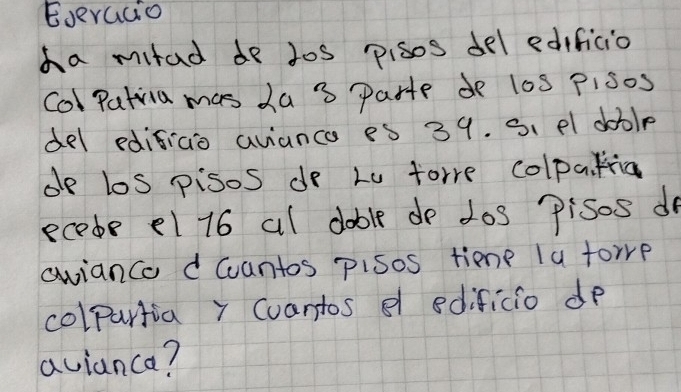 Ejercicio
La mitad de los pisos del edificio
Col Patria mas La 3 Parte de los Pisos
del edificio avianca es 39. Si el doble
de los pisos de La torre colpatria
ecede el 16 al doble de los Pisos de
avianca d Cuantos Pisos tiene la torre
colpartia y Cuantos el edificio de
avianca?